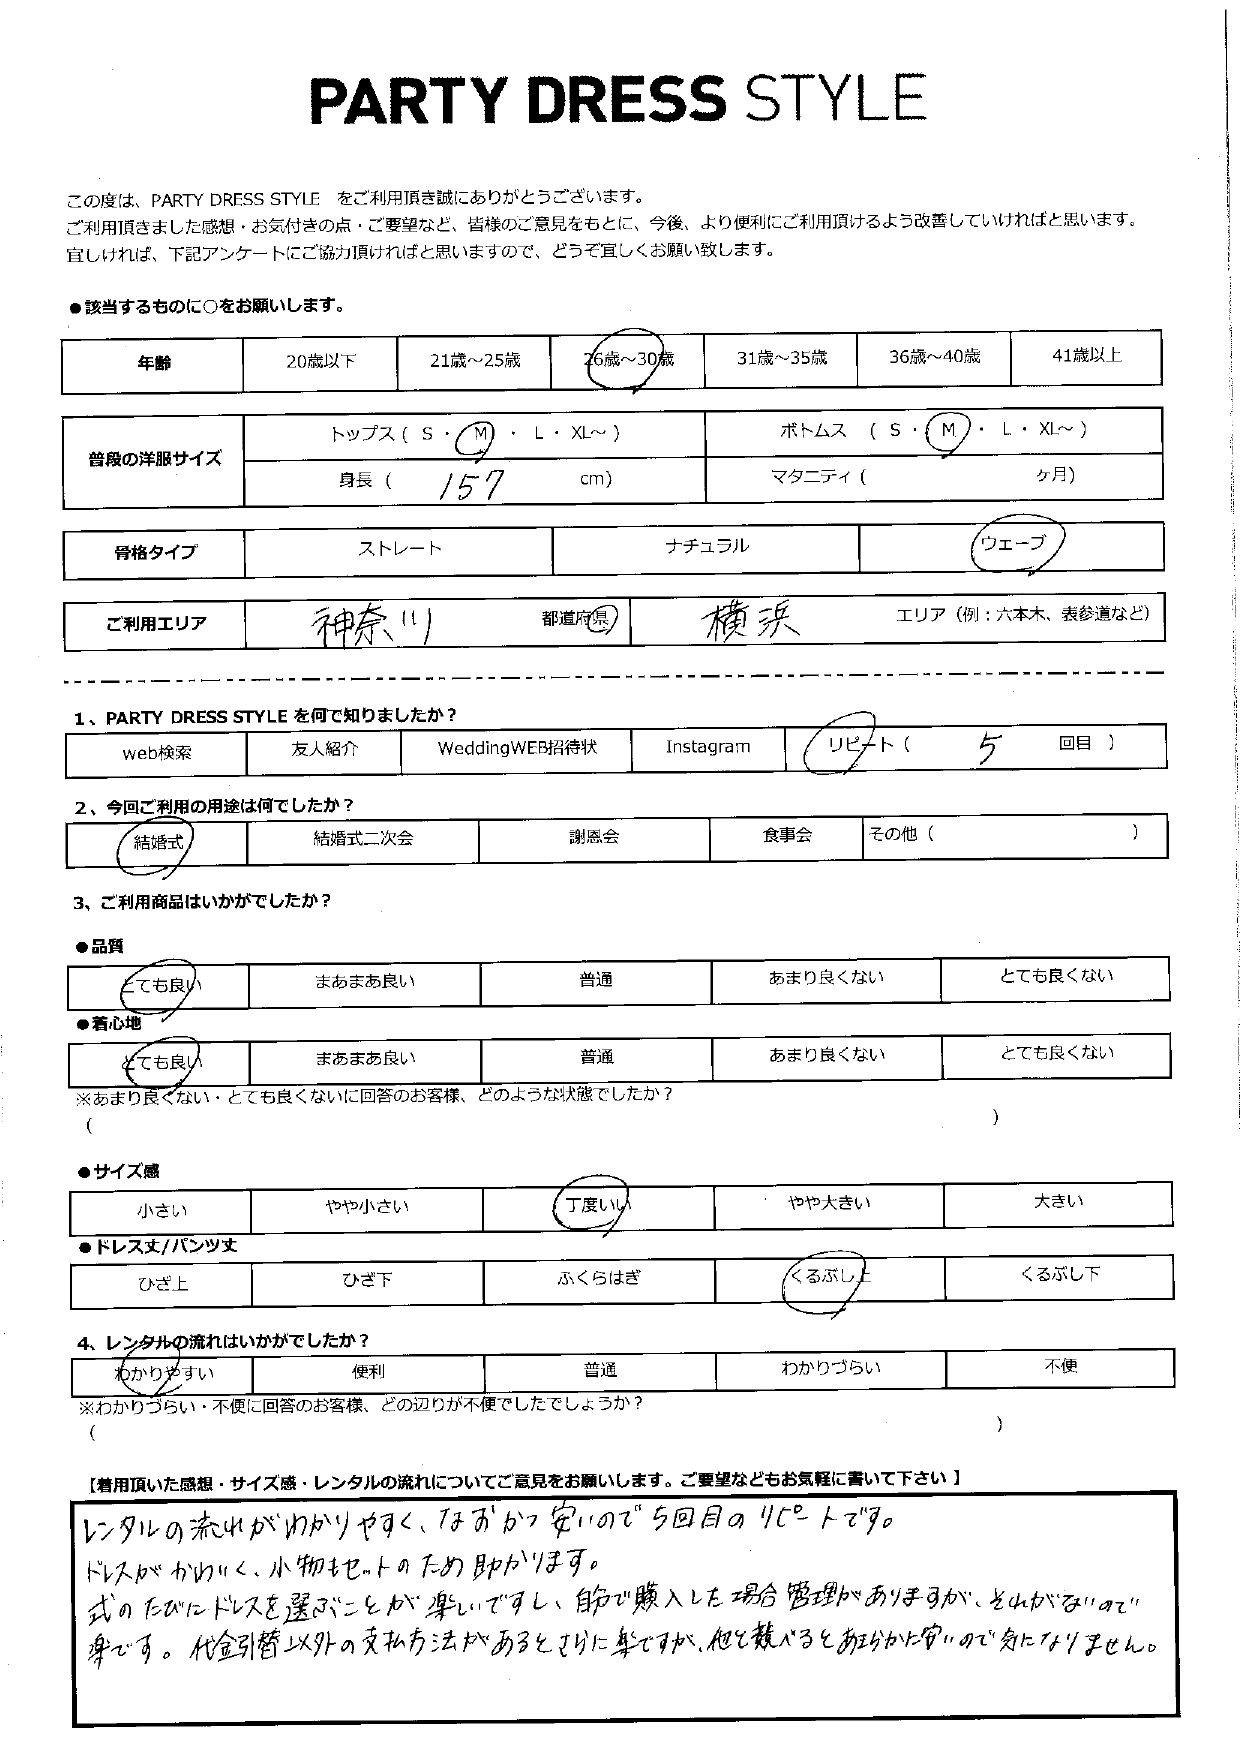 PARTY DRESS STYLE
この度は、PARTY DRESS STYLE をご利用頂き誠にありがとうございます。
ご利用頂きました感想・お気付きの点・ご要望など、皆様のご意見をもとに、今後、より便利にご利用頂けるよう改善していければと思います。
宜しければ、下記アンケートにご協力頂ければと思いますので、どうぞ宜しくお願い致します。
●該当するものに○をお願いします。
年齢 20歳以下 21歳～25歳 26歳～30歳 31歳～35歳 36歳～40歳 41歳以上
普段の洋服サイズ トップス ( S ・ M ・ L ・ XL～ ) ボトムス ( S ・ M ・ L ・ XL～ )
身長 ( 157 cm) マタニティ ( ヶ月)
骨格タイプ ストレート ナチュラル ウェーブ
ご利用エリア 神奈川 都道府県 横浜 エリア（例：六本木、表参道など）
1、PARTY DRESS STYLE を何で知りましたか？
web検索 友人紹介 WeddingWEB招待状 Instagram リピート ( 5 回目 )
2、今回ご利用の用途は何でしたか？
結婚式 結婚式二次会 謝恩会 食事会 その他 ( )
3、ご利用商品はいかがでしたか？
●品質
とても良い まあまあ良い 普通 あまり良くない とても良くない
●着心地
とても良い まあまあ良い 普通 あまり良くない とても良くない
※あまり良くない・とても良くないに回答のお客様、どのような状態でしたか？
( )
●サイズ感
小さい やや小さい 丁度いい やや大きい 大きい
●ドレス丈/パンツ丈
ひざ上 ひざ下 ふくらはぎ くるぶし上 くるぶし下
4、レンタルの流れはいかがでしたか？
わかりやすい 便利 普通 わかりづらい 不便
※わかりづらい・不便に回答のお客様、どの辺りが不便でしたでしょうか？
( )
【着用頂いた感想・サイズ感・レンタルの流れについてご意見をお願いします。ご要望などもお気軽に書いて下さい 】
レンタルの流れがわかりやすく、なおかつ安いので5回目のリピートです。
ドレスがかわいく、小物もセットのため助かります。
式のたびにドレスを選ぶことが楽しいですし、自分で購入した場合管理がありますが、それがないので
楽です。代金引替以外の支払方法があるとさらに楽ですが、他と較べるとあきらかに安いので気になりません。